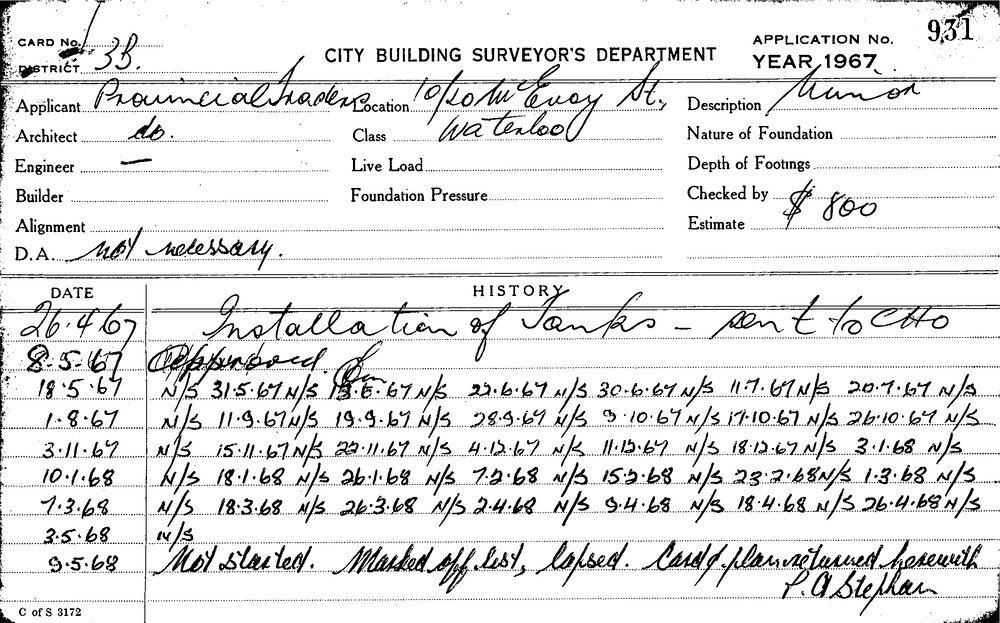 CARD No. 1
DISTRICT 3B.
CITY BUILDING SURVEYOR'S DEPARTMENT
APPLICATION No. 931
YEAR 1967
Applicant Provincial Traders
Location 10/20 McEvoy St.,
Description Minor
Architect do.
Class Waterloo
Nature of Foundation
Engineer —
Live Load
Depth of Footings
Builder
Foundation Pressure
Checked by
Alignment
Estimate $ 800
D.A. not necessary.
DATE HISTORY
26.4.67 Installation of Tanks - sent to CHO
8.5.67 Approved.
18.5.67 N/S 31.5.67 N/S 13.6.67 N/S 22.6.67 N/S 30.6.67 N/S 11.7.67 N/S 20.7.67 N/S
1.8.67 N/S 11.9.67 N/S 19.9.67 N/S 28.9.67 N/S 9.10.67 N/S 17.10.67 N/S 26.10.67 N/S
3.11.67 N/S 15.11.67 N/S 22.11.67 N/S 4.12.67 N/S 11.12.67 N/S 18.12.67 N/S 3.1.68 N/S
10.1.68 N/S 18.1.68 N/S 26.1.68 N/S 7.2.68 N/S 15.2.68 N/S 23.2.68 N/S 1.3.68 N/S
7.3.68 N/S 18.3.68 N/S 26.3.68 N/S 2.4.68 N/S 9.4.68 N/S 18.4.68 N/S 26.4.68 N/S
3.5.68 N/S
9.5.68 Not started. Marked off list, lapsed. Card & plan returned herewith
P. A Stephan
C of S 3172